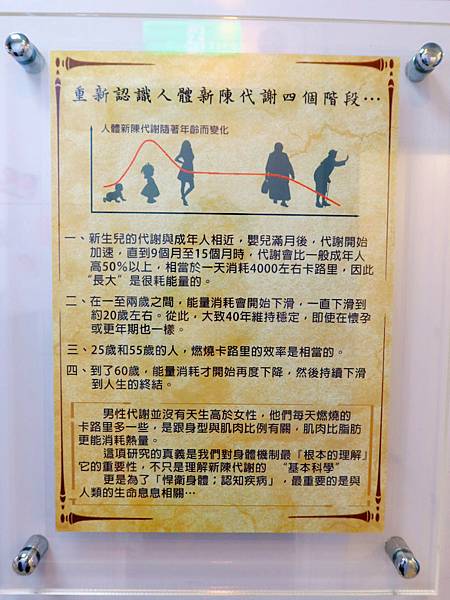 重新認識人體新陳代謝四個階段…
人體新陳代謝隨著年齡而變化
一、新生兒的代謝與成年人相近，嬰兒滿月後，代謝開始
加速，直到9個月至15個月時，代謝會比一般成年人
高50%以上，相當於一天消耗4000左右卡路里，因此
“長大”是很耗能量的。
二、在一至兩歲之間，能量消耗會開始下滑，一直下滑到
約20歲左右。從此，大致40年維持穩定，即使在懷孕
或更年期也一樣。
三、25歲和55歲的人，燃燒卡路里的效率是相當的。
四、到了60歲，能量消耗才開始再度下降，然後持續下滑
到人生的終結。
男性代謝並沒有天生高於女性，他們每天燃燒的
卡路里多一些，是跟身型與肌肉比例有關，肌肉比脂肪
更能消耗熱量。
這項研究的真義是我們對身體機制最「根本的理解」
它的重要性，不只是理解新陳代謝的 “基本科學”
更是為了「悍衛身體；認知疾病」，最重要的是與
人類的生命息息相關…